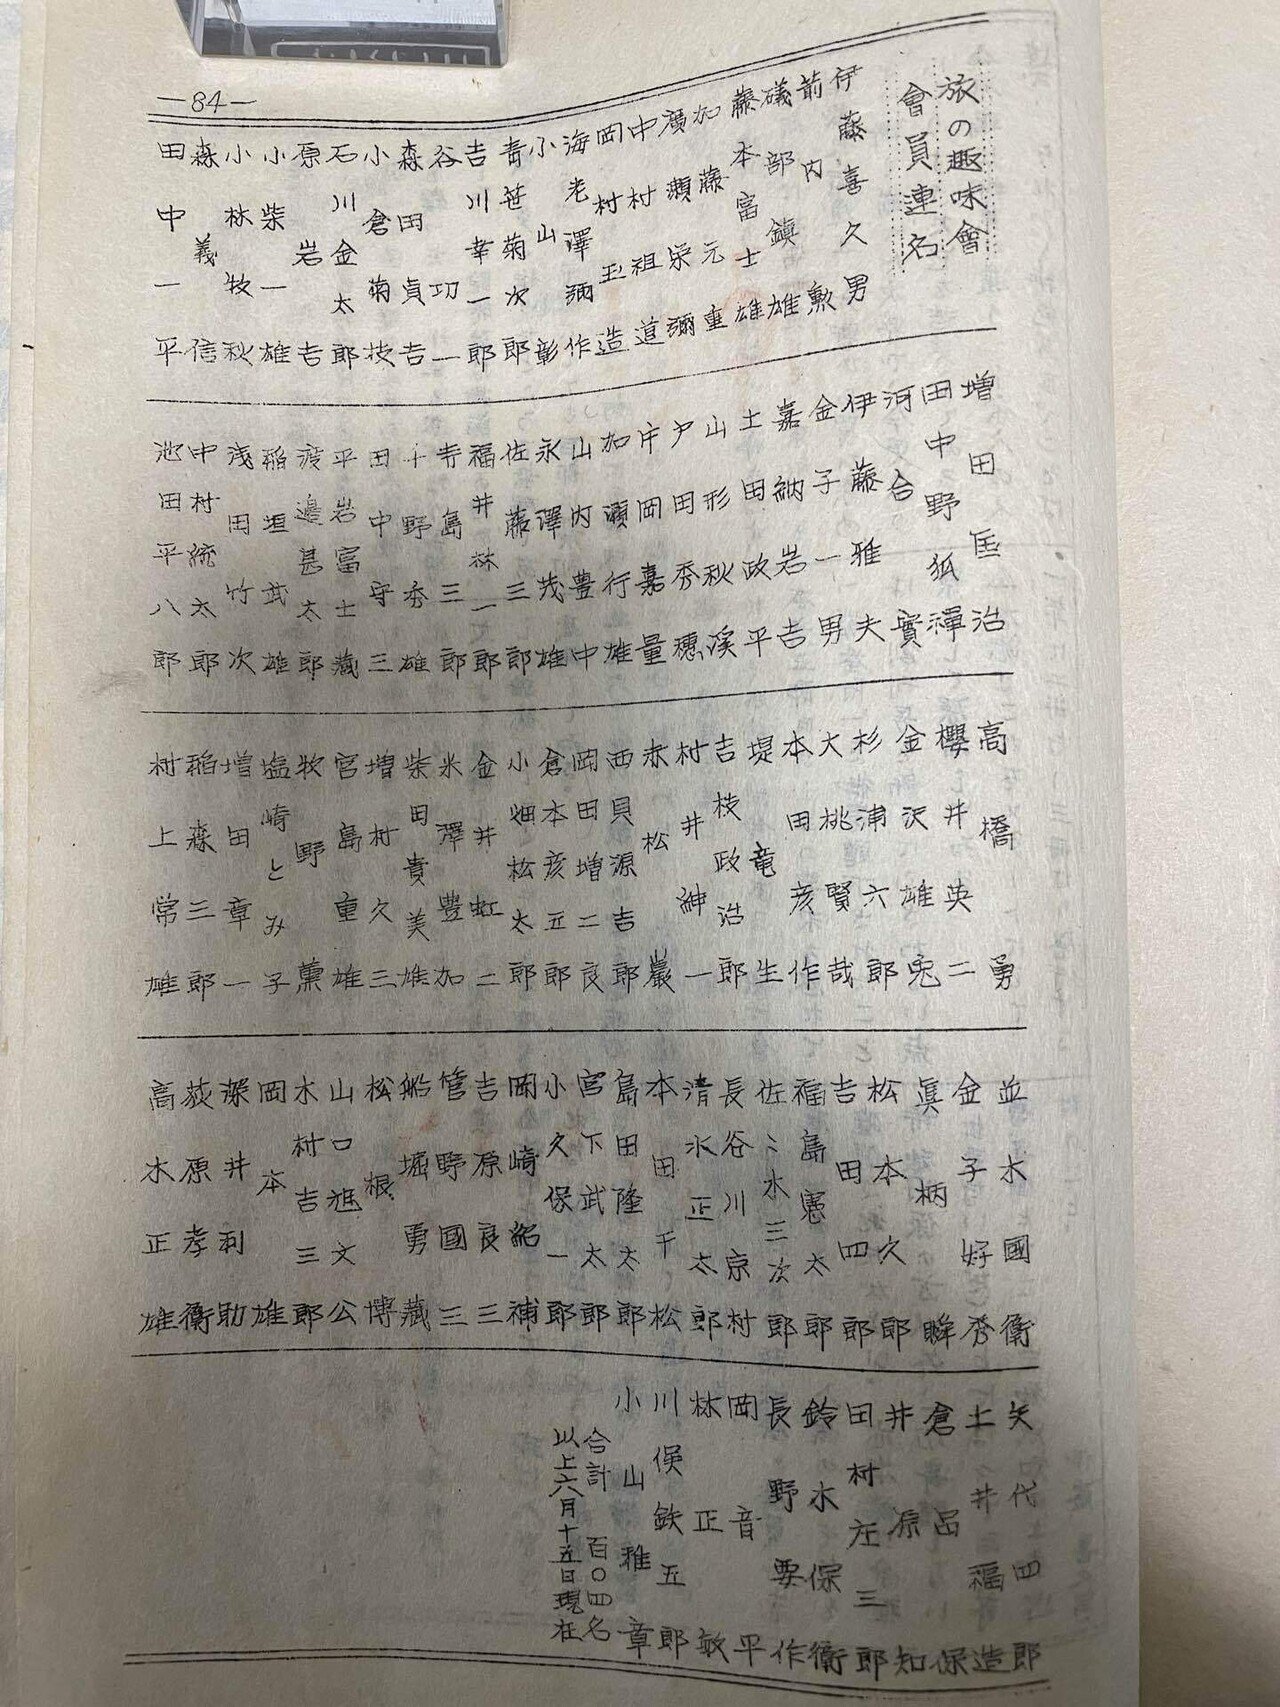 旅の趣味會
會員連名
伊藤喜久男
前内勲
磯部鎮雄
藤本富士雄
加藤元重
廣瀬栄彌
中村祖道
岡村玉造
海老澤彌作
小山彰
青笹菊次郎
吉川幸一郎
谷功一
森田貞吉
小倉菊枝
石川金太郎
原岩吉
小柴一雄
小林牧秋
森義信
田中一平
増田匡治
田中野狐禪
河合實
伊藤雅夫
金子一男
嘉納岩吉
土田政平
山形秋渓
戸田秀穂
片岡嘉量
加瀬行雄
山内豊中
永澤茂雄
佐藤三郎
福井林一郎
寺島三郎
十野秀雄
田中守三
平岩富士蔵
渡邊甚太郎
稲垣武雄
浅田竹次
中村統太郎
池田平八郎
高橋勇
櫻井英二
金沢雄兎
杉浦六郎
大桃賢哉
本田彦作
堤竜生
吉枝政浩郎
村井紳一
赤松巌
西貝源吉郎
岡田増二良
倉本彦五郎
小畑松太郎
金井虹二
米澤豊加
柴田貴美雄
増村久三
宮島重雄
牧野薫
塩崎とみ子
増田章一
稲森三郎
村上常雄
並木國衛
金子好秀
眞柄瞬
松本久郎
吉田四郎
福島憲太郎
佐々水三次郎
長谷川京村
清水正太郎
本田千松
島田隆太郎
宮下武太郎
小久保一郎
岡崎紹補
吉原良三
管野國三
船堀勇蔵
松根博
山口旭文公
木村吉三郎
岡本雄
深井利助
荻原孝衛
高木正雄
矢代四郎
土井福造
倉品保
井原知
田村庄三郎
鈴木保衛
長野要作
岡音平
林正敏
川俣鉄五郎
小山雅章
合計 百〇四名
以上六月十五日現在
―84―